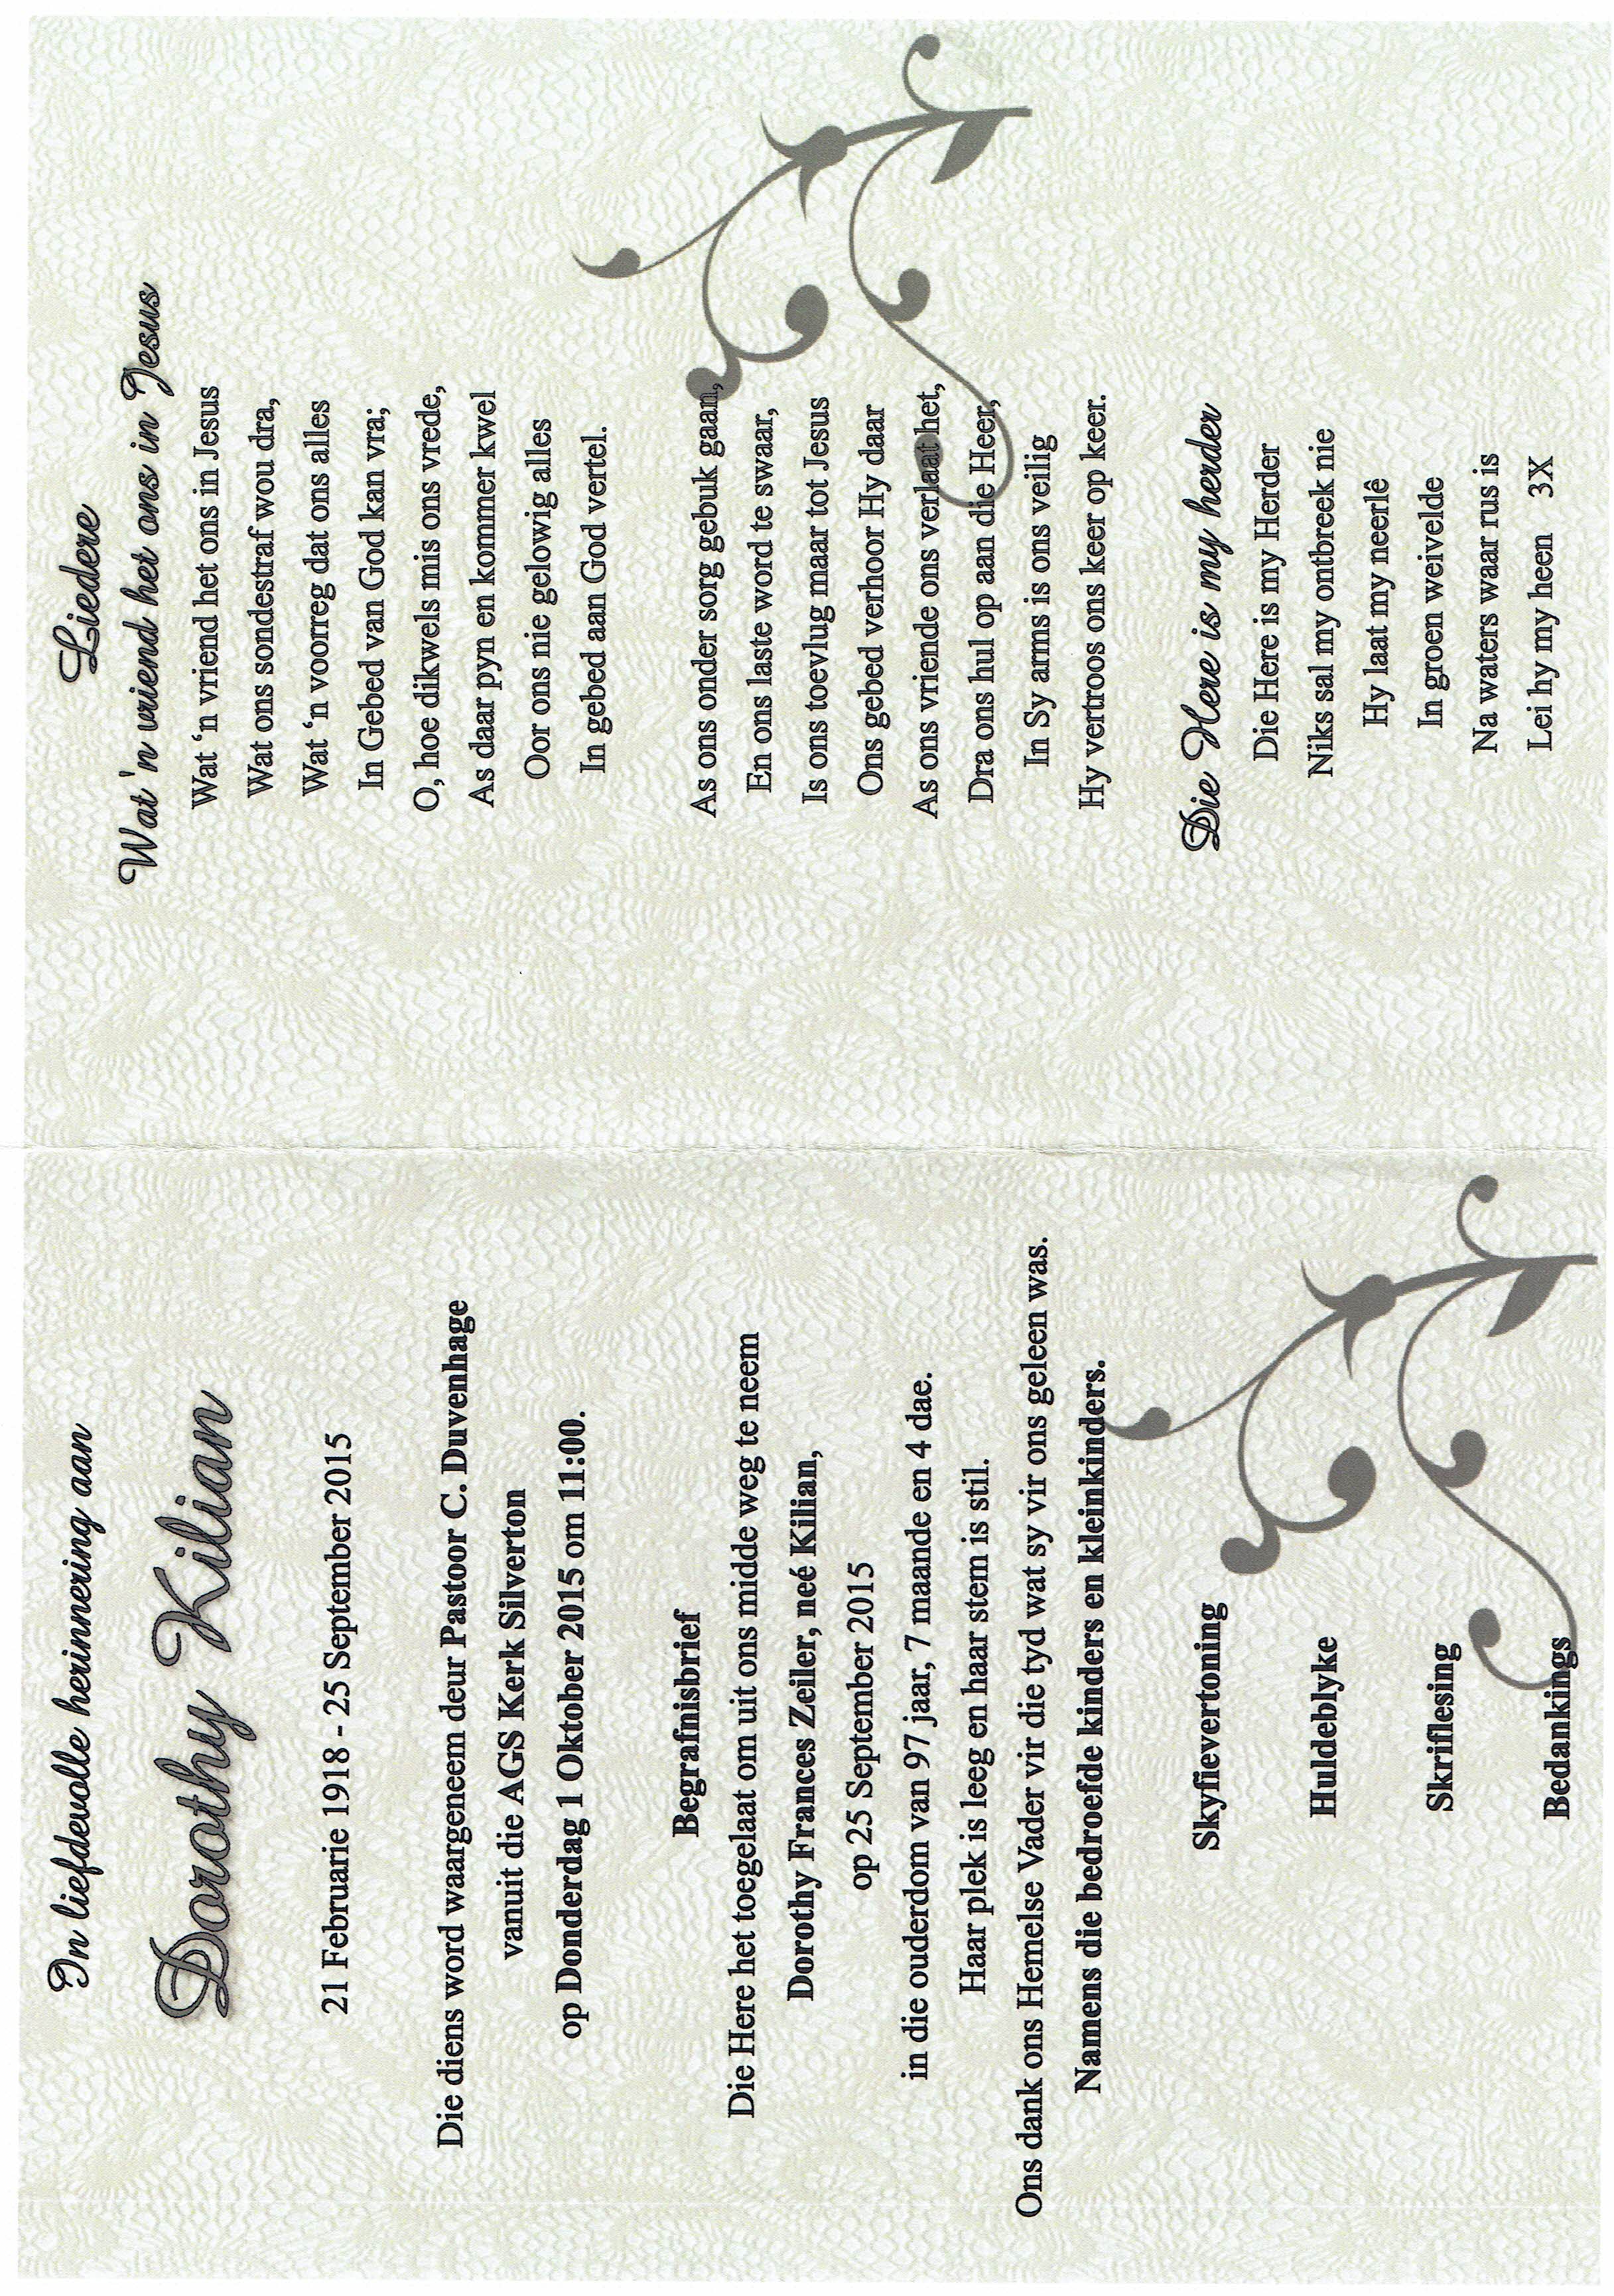 In liefdevolle herinnering aan
Dorothy Kilian
21 Februarie 1918 - 25 September 2015
Die diens word waargeneem deur Pastoor C. Duvenhage
vanuit die AGS Kerk Silverton
op Donderdag 1 Oktober 2015 om 11:00.
Begrafnisbrief
Die Here het toegelaat om uit ons midde weg te neem
Dorothy Frances Zeiler, neé Kilian,
op 25 September 2015
in die ouderdom van 97 jaar, 7 maande en 4 dae.
Haar plek is leeg en haar stem is stil.
Ons dank ons Hemelse Vader vir die tyd wat sy vir ons geleen was.
Namens die bedroefde kinders en kleinkinders.
Skyfievertoning
Huldeblyke
Skriflesing
Bedankings
Liedere
Wat 'n vriend het ons in Jesus
Wat ‘n vriend het ons in Jesus
Wat ons sondestraf wou dra,
Wat ‘n voorreg dat ons alles
In Gebed van God kan vra;
O, hoe dikwels mis ons vrede,
As daar pyn en kommer kwel
Oor ons nie gelowig alles
In gebed aan God vertel.
As ons onder sorg gebuk gaan,
En ons laste word te swaar,
Is ons toevlug maar tot Jesus
Ons gebed verhoor Hy daar
As ons vriende ons verlaat het,
Dra ons hul op aan die Heer,
In Sy arms is ons veilig
Hy vertroos ons keer op keer.
Die Here is my herder
Die Here is my Herder
Niks sal my ontbreek nie
Hy laat my neerlê
In groen weivelde
Na waters waar rus is
Lei hy my heen 3X